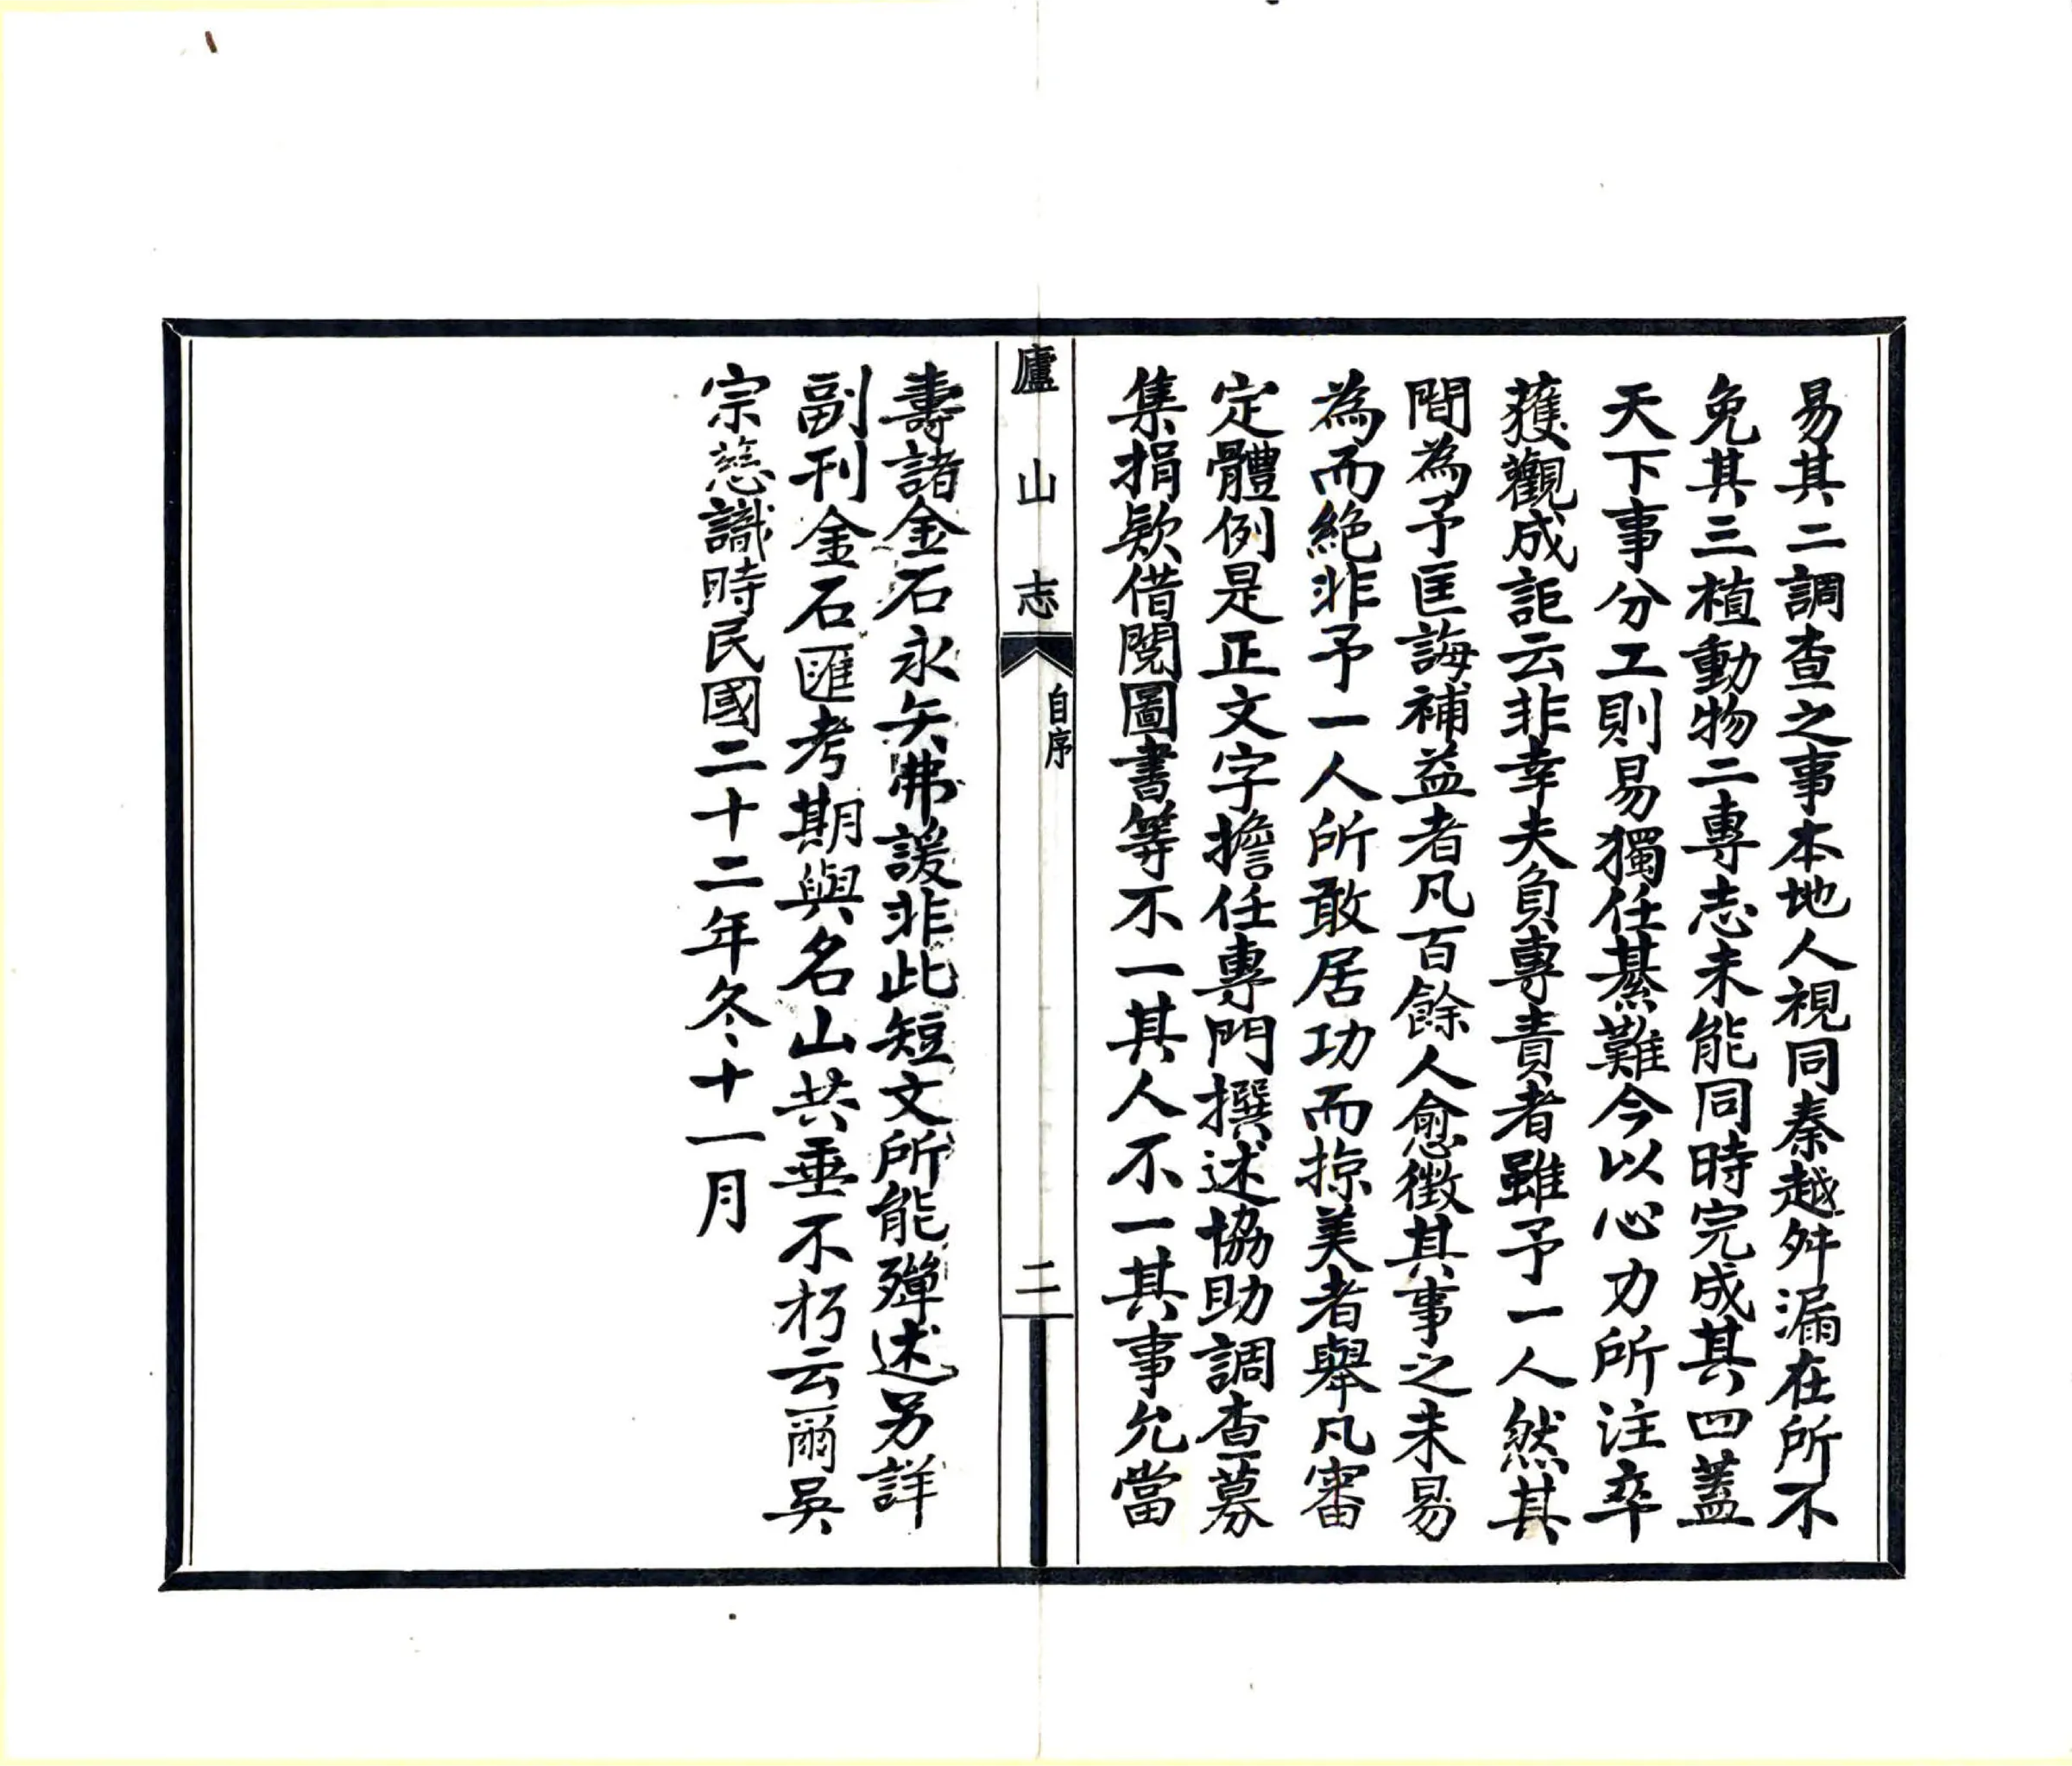 易其二調查之事本地人視同秦越舛漏在所不
免其三植動物二專志未能同時完成其四蓋
天下事分工則易獨任綦難今以心力所注卒
獲觀成詎云非幸夫負專責者雖予一人然其
間為予匡誨補益者凡百餘人愈徵其事之未易
為而絕非予一人所敢居功而掠美者舉凡審
定體例是正文字擔任專門撰述協助調查募
集捐欵借閱圖書等不一其人不一其事允當
廬山志
自序
二
壽諸金石永矢弗諼非此短文所能殫述另詳
副刊金石匯考期與名山共垂不朽云爾吳
宗慈識時民國二十二年冬十一月